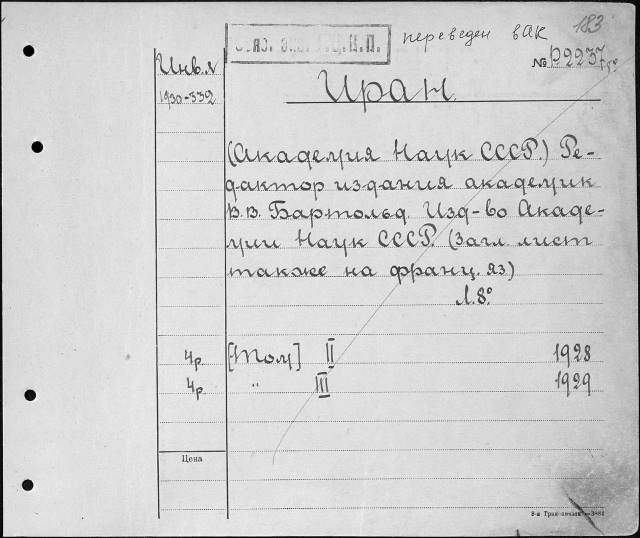 183
переведен в АК
Инв. №
№ Р2237
1930-332
Иран.
(Академия Наук СССР.) Ре-
дактор издания академик
В.В. Бартольд. Изд-во Акаде-
мии Наук СССР. (Загл. лист
также на франц. яз.)
Л. 8°.
4р. [Том] II 1928
4р. „ III 1929
Цена